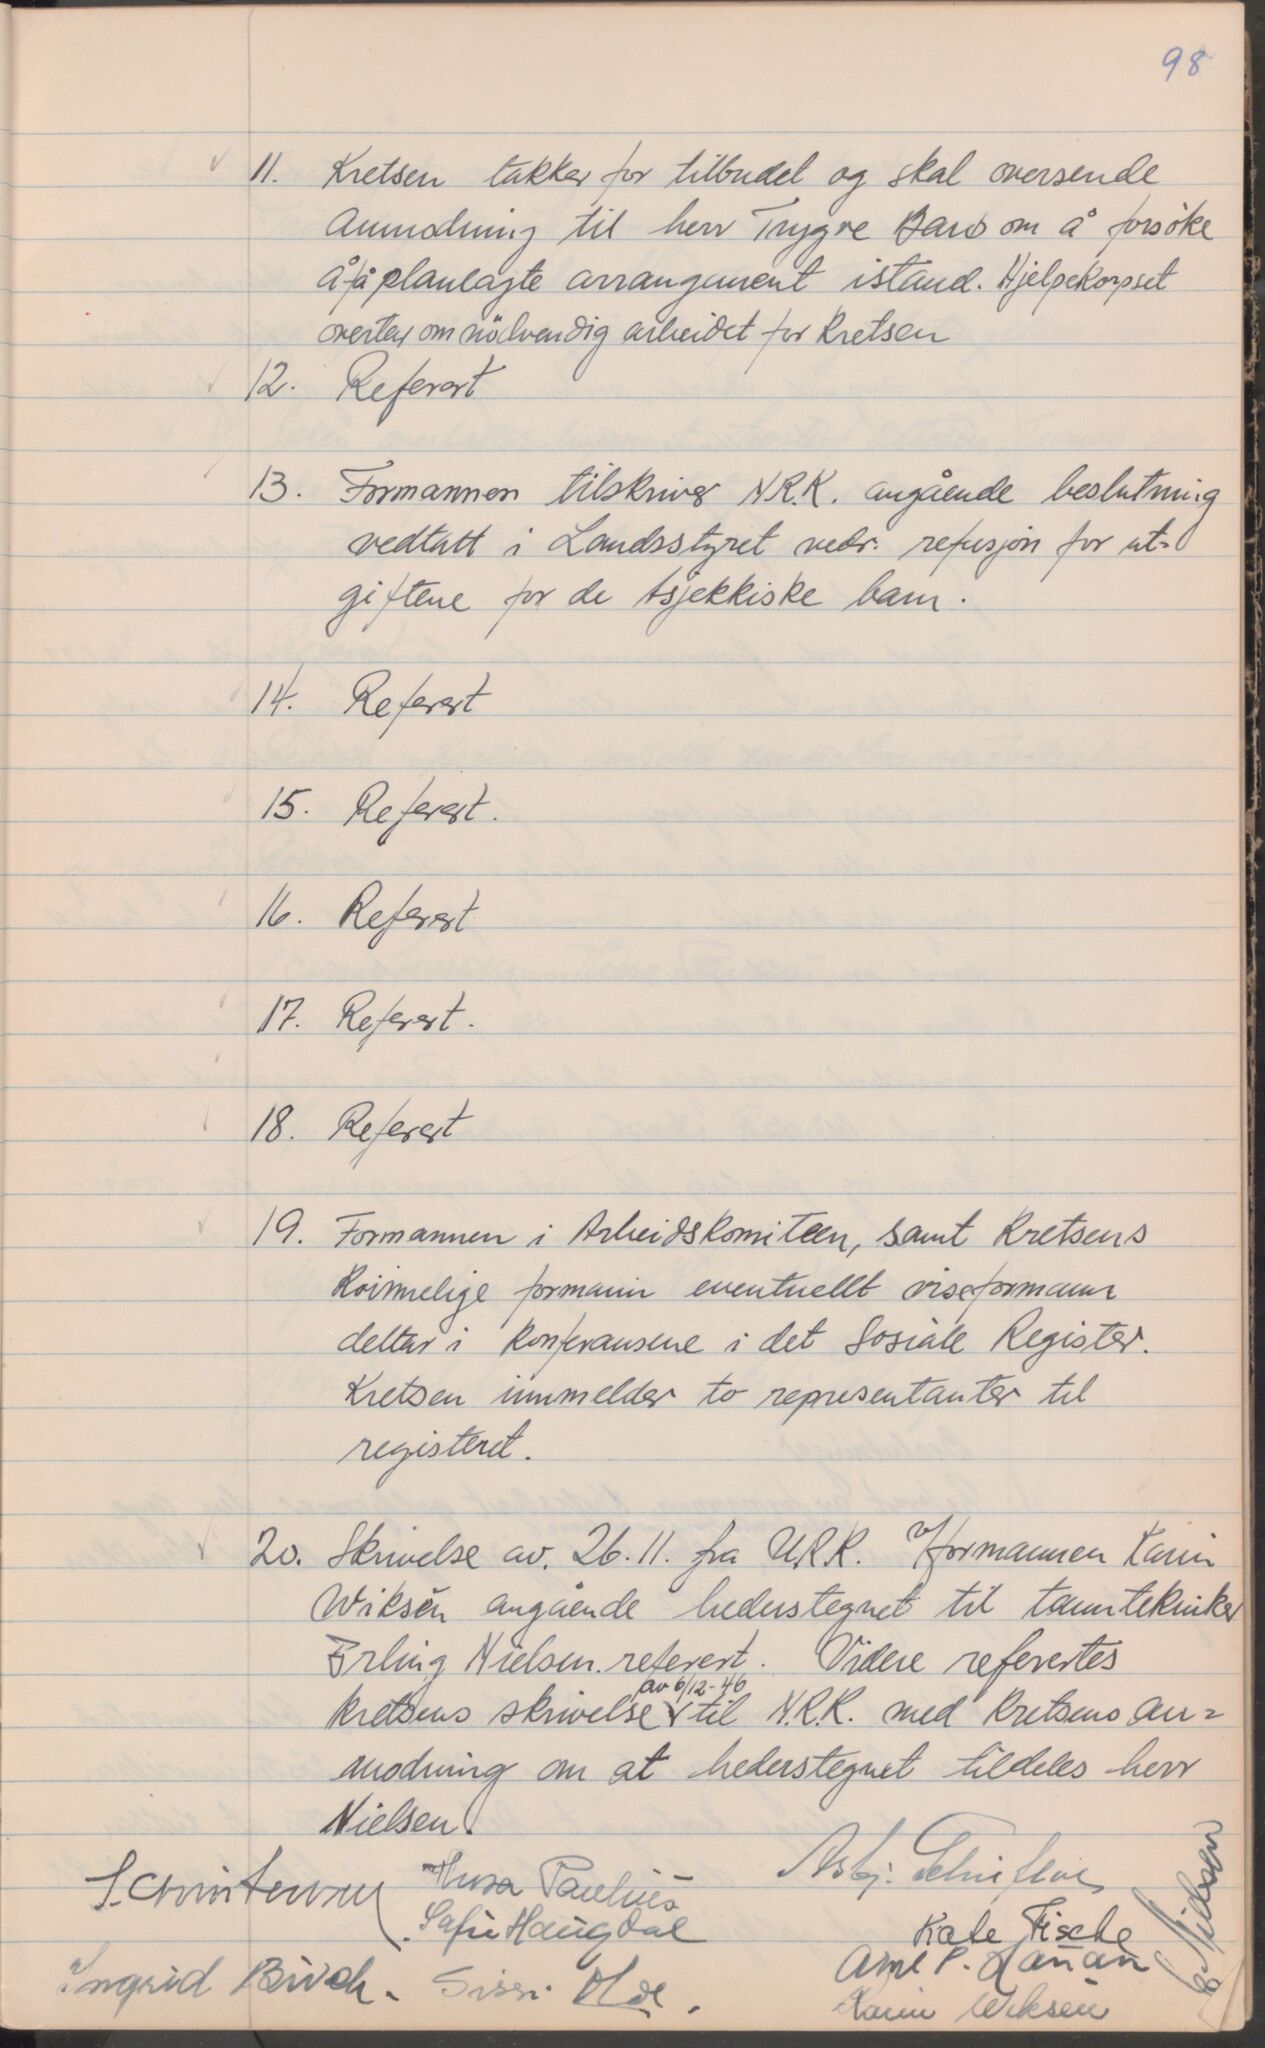 98
11. Kretsen takker for tilbudet og skal oversende
Anmodning til herr Trygve om å forsøke
å få planlagte arrangement istand. Hjelpekorpset
overtar om nödvendig arbeidet for Kretsen
12. Referert
13. Formannen tilskriver N.R.K. angående beslutning
vedtatt i Landsstyret vedr. refusjon for ut=
giftene for de tsjekkiske barn.
14. Referert
15. Referert.
16. Referert
17. Referert.
18. Referert
19. Formannen i Arbeidskomiteen, samt Kretsens
Kvinnelige formann eventuellt viseformann
deltar i konferansene i det Sosiale Register.
Kretsen innmelder to representanter til
registeret.
20. Skrivelse av. 26.11. fra U.R.K. v/formannen Karin
Wiksén angående hederstegnet til tanntekniker
Erling Nielsen referert. Videre refertes
av 6/12-46
kretsens skrivelse til N.R.K. med Kretsens an=
modning om at hederstegnet tildeles herr
Nielsen.
Kate Fische
Ingrid Birch. Sissi Moe.
Karin Wiksén